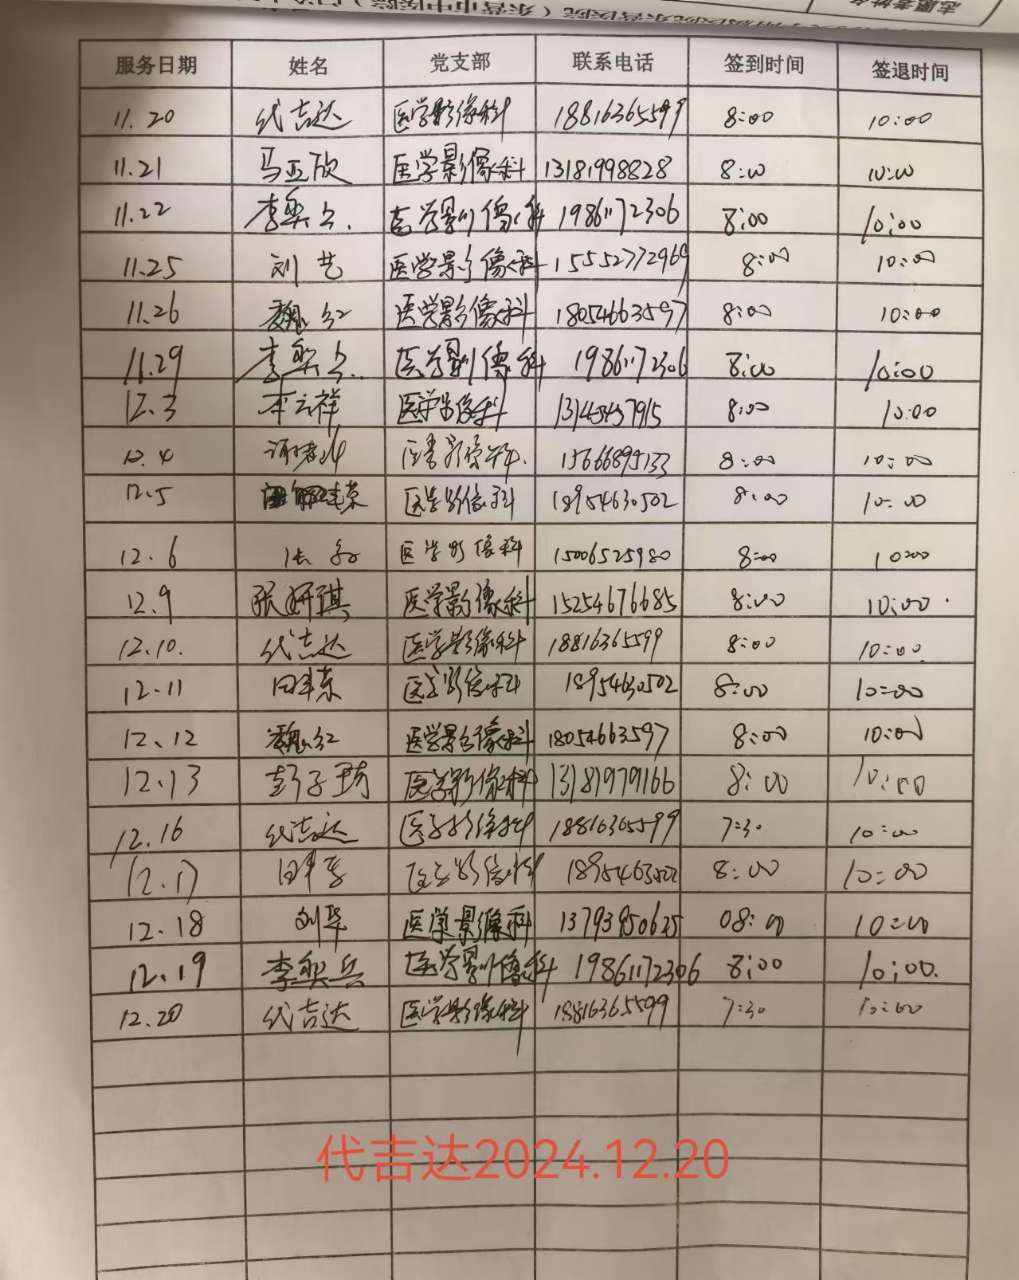 服务日期 姓名 党支部 联系电话 签到时间 签退时间
11.20 代吉达 医学影像科 18816365599 8:00 10:00
11.21 马亚欣 医学影像科 13181998828 8:00 10:00
11.22 李奥兵 医学影像科 19861172306 8:00 10:00
11.25 刘艺 医学影像科 15552772969 8:00 10:00
11.26 魏红 医学影像科 18054663597 8:00 10:00
11.29 李奥兵 医学影像科 19861172306 8:00 10:00
12.3 李云祥 医学影像科 8:00 10:00
12.4 医学影像科 15666895133 8:00 10:00
12.5 医学影像科 18954630502 8:00 10:00
12.6 医学影像科 15006525980 8:00 10:00
12.9 张妍琪 医学影像科 15254676685 8:00 10:00
12.10. 代吉达 医学影像科 18816365599 8:00 10:00
12.11 医学影像科 18954630502 8:00 10:00
12.12 魏红 医学影像科 18054663597 8:00 10:00
12.13 彭子琦 医学影像科 13181979166 8:00 10:00
12.16 代吉达 医学影像科 18816365599 7:30 10:00
12.17 医学影像科 18954630502 8:00 10:00
12.18 刘华 医学影像科 13793950625 08:00 10:00
12.19 李奥兵 医学影像科 19861172306 8:00 10:00.
12.20 代吉达 医学影像科 18816365599 7:30 10:00
代吉达2024.12.20